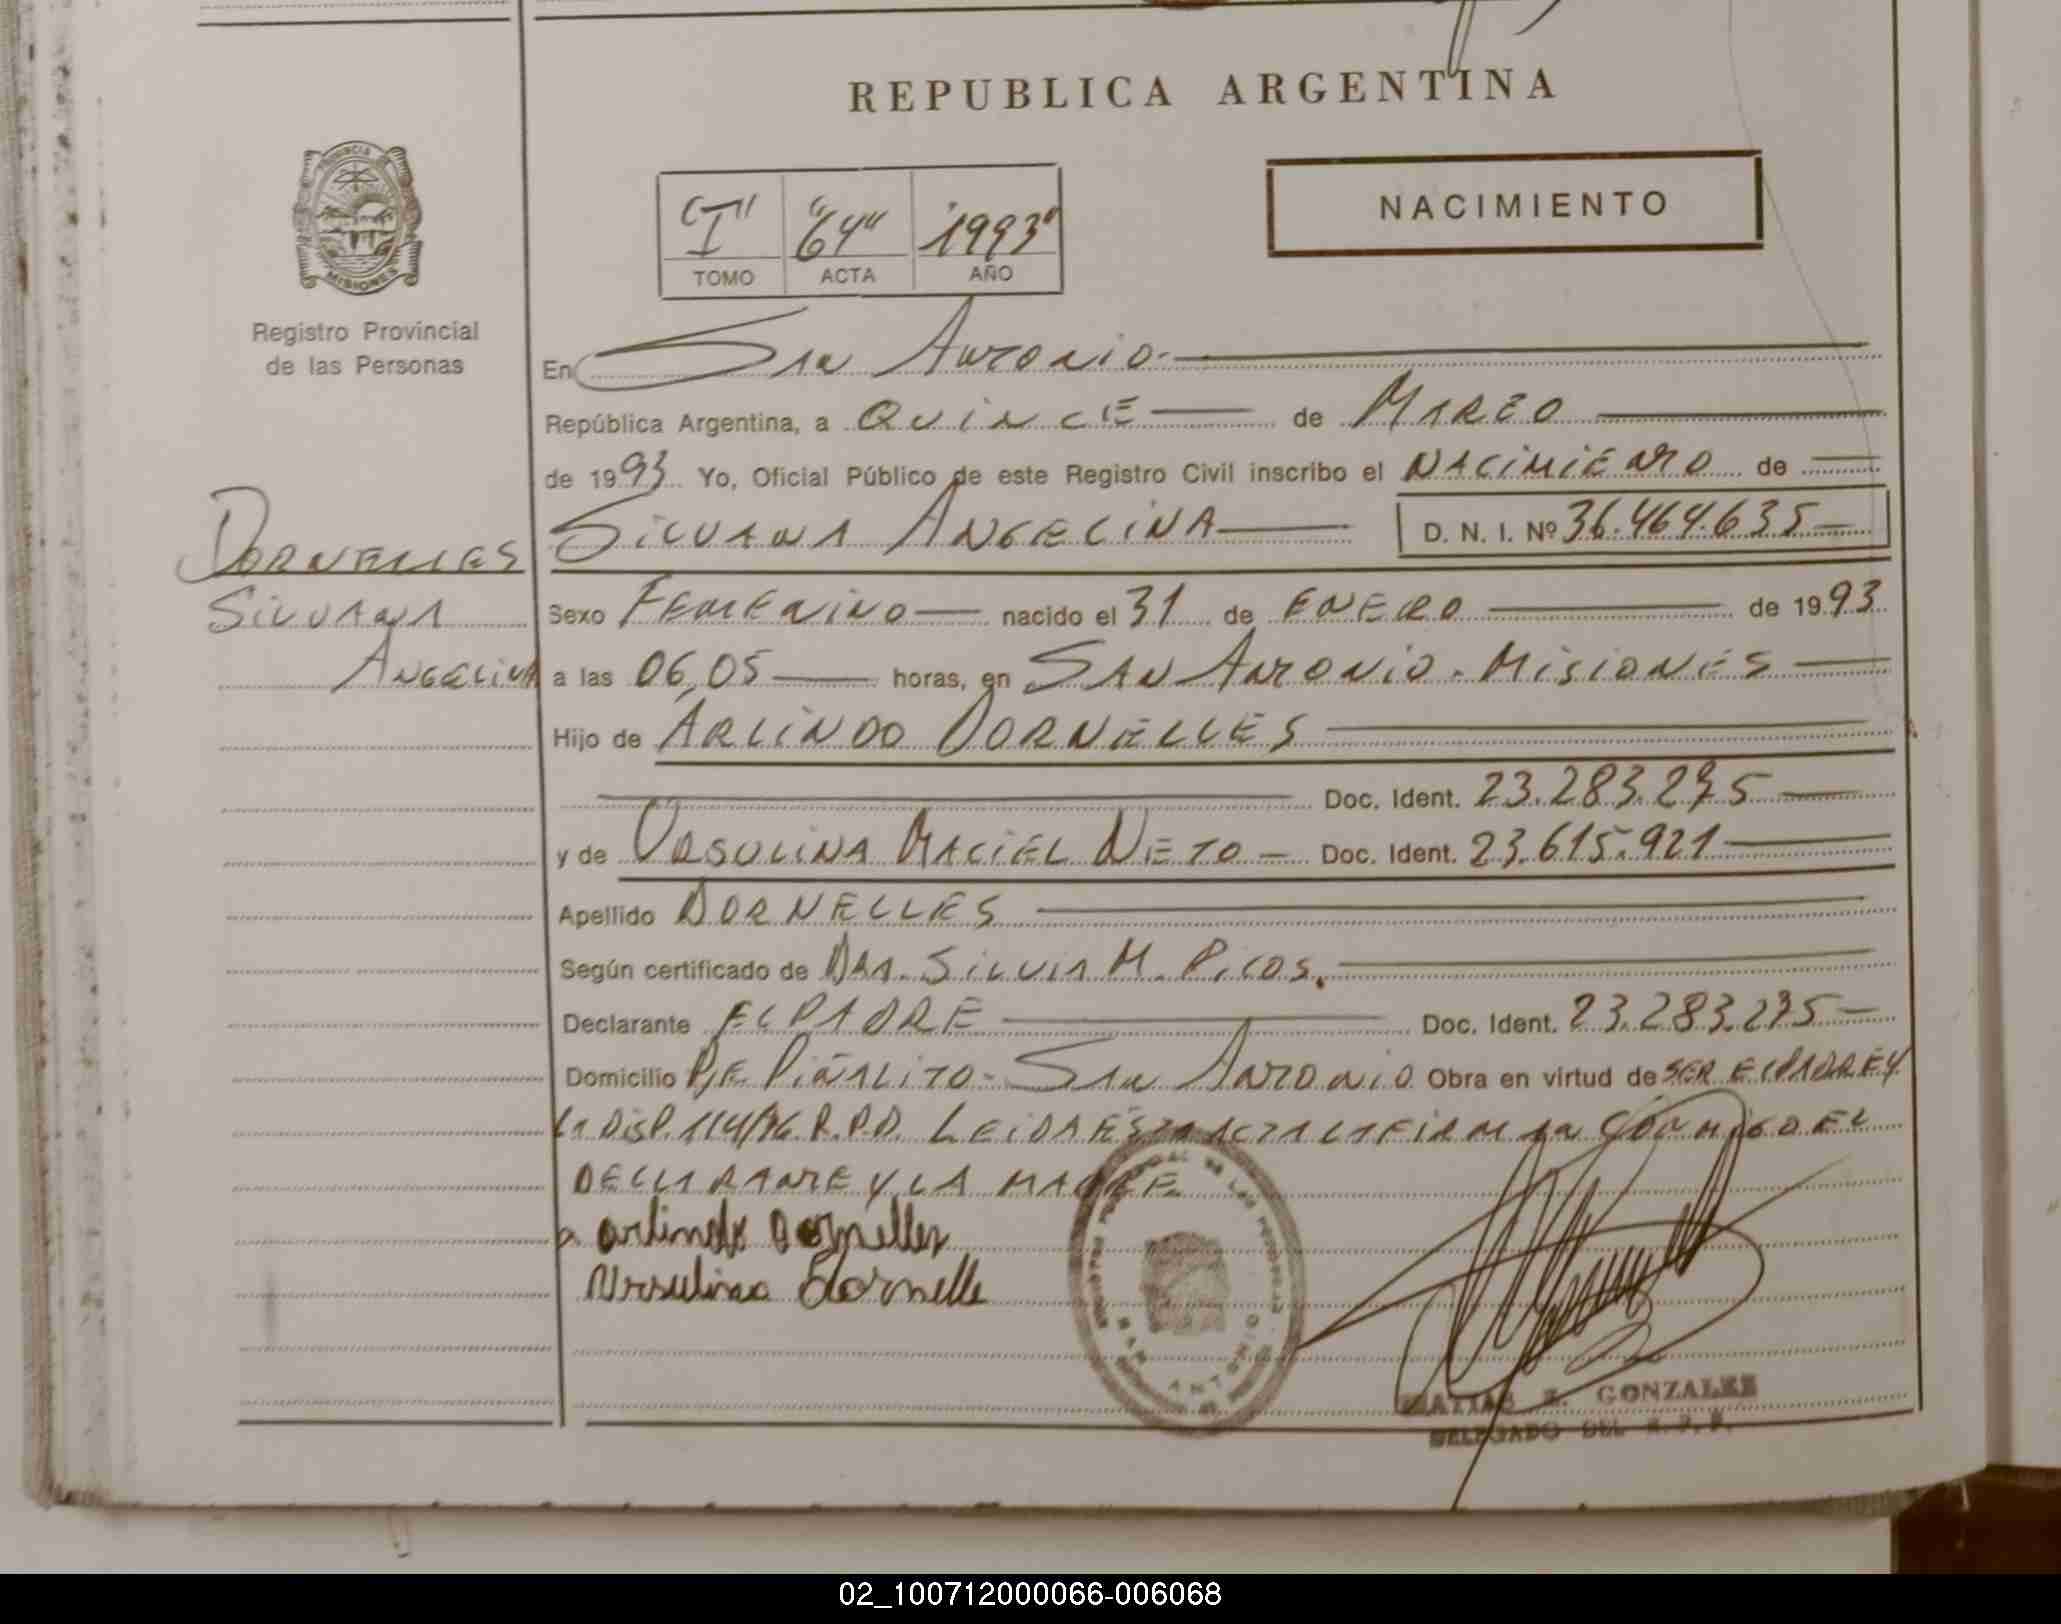 REPUBLICA ARGENTINA
PROVINCIA
MISIONES
Registro Provincial
de las Personas
"I" "64" "1993"
TOMO ACTA AÑO
NACIMIENTO
En San Antonio.
República Argentina, a QUINCE de MARZO
de 1993. Yo, Oficial Público de este Registro Civil inscribo el NACIMIENTO de
DORNELLES
SILVANA
ANGELINA
SILVANA ANGELINA D. N. I. Nº 36.464.635
Sexo FEMENINO nacido el 31 de ENERO de 1993
a las 06,05 horas, en SAN ANTONIO. MISIONES
Hijo de ARLINDO DORNELLES
Doc. Ident. 23.283.275
y de URSULINA MACIEL NETO Doc. Ident. 23.615.921
Apellido DORNELLES
Según certificado de DRA. SILVIA M. PICOS.
Declarante EL PADRE Doc. Ident. 23.283.275
Domicilio PJE PIÑALITO - SAN ANTONIO Obra en virtud de SER EL PADRE Y
LA DISP. 114/ R.P.P. LEIDA ESTA ACTA LA FIRMAN CONMIGO EL
DECLARANTE Y LA MADRE
arlindo Dornelles
Ursulina Dornelle
SAN ANTONIO
MATIAS GONZALEZ
DELEGADO DEL R. P. P.
02_100712000066-006068